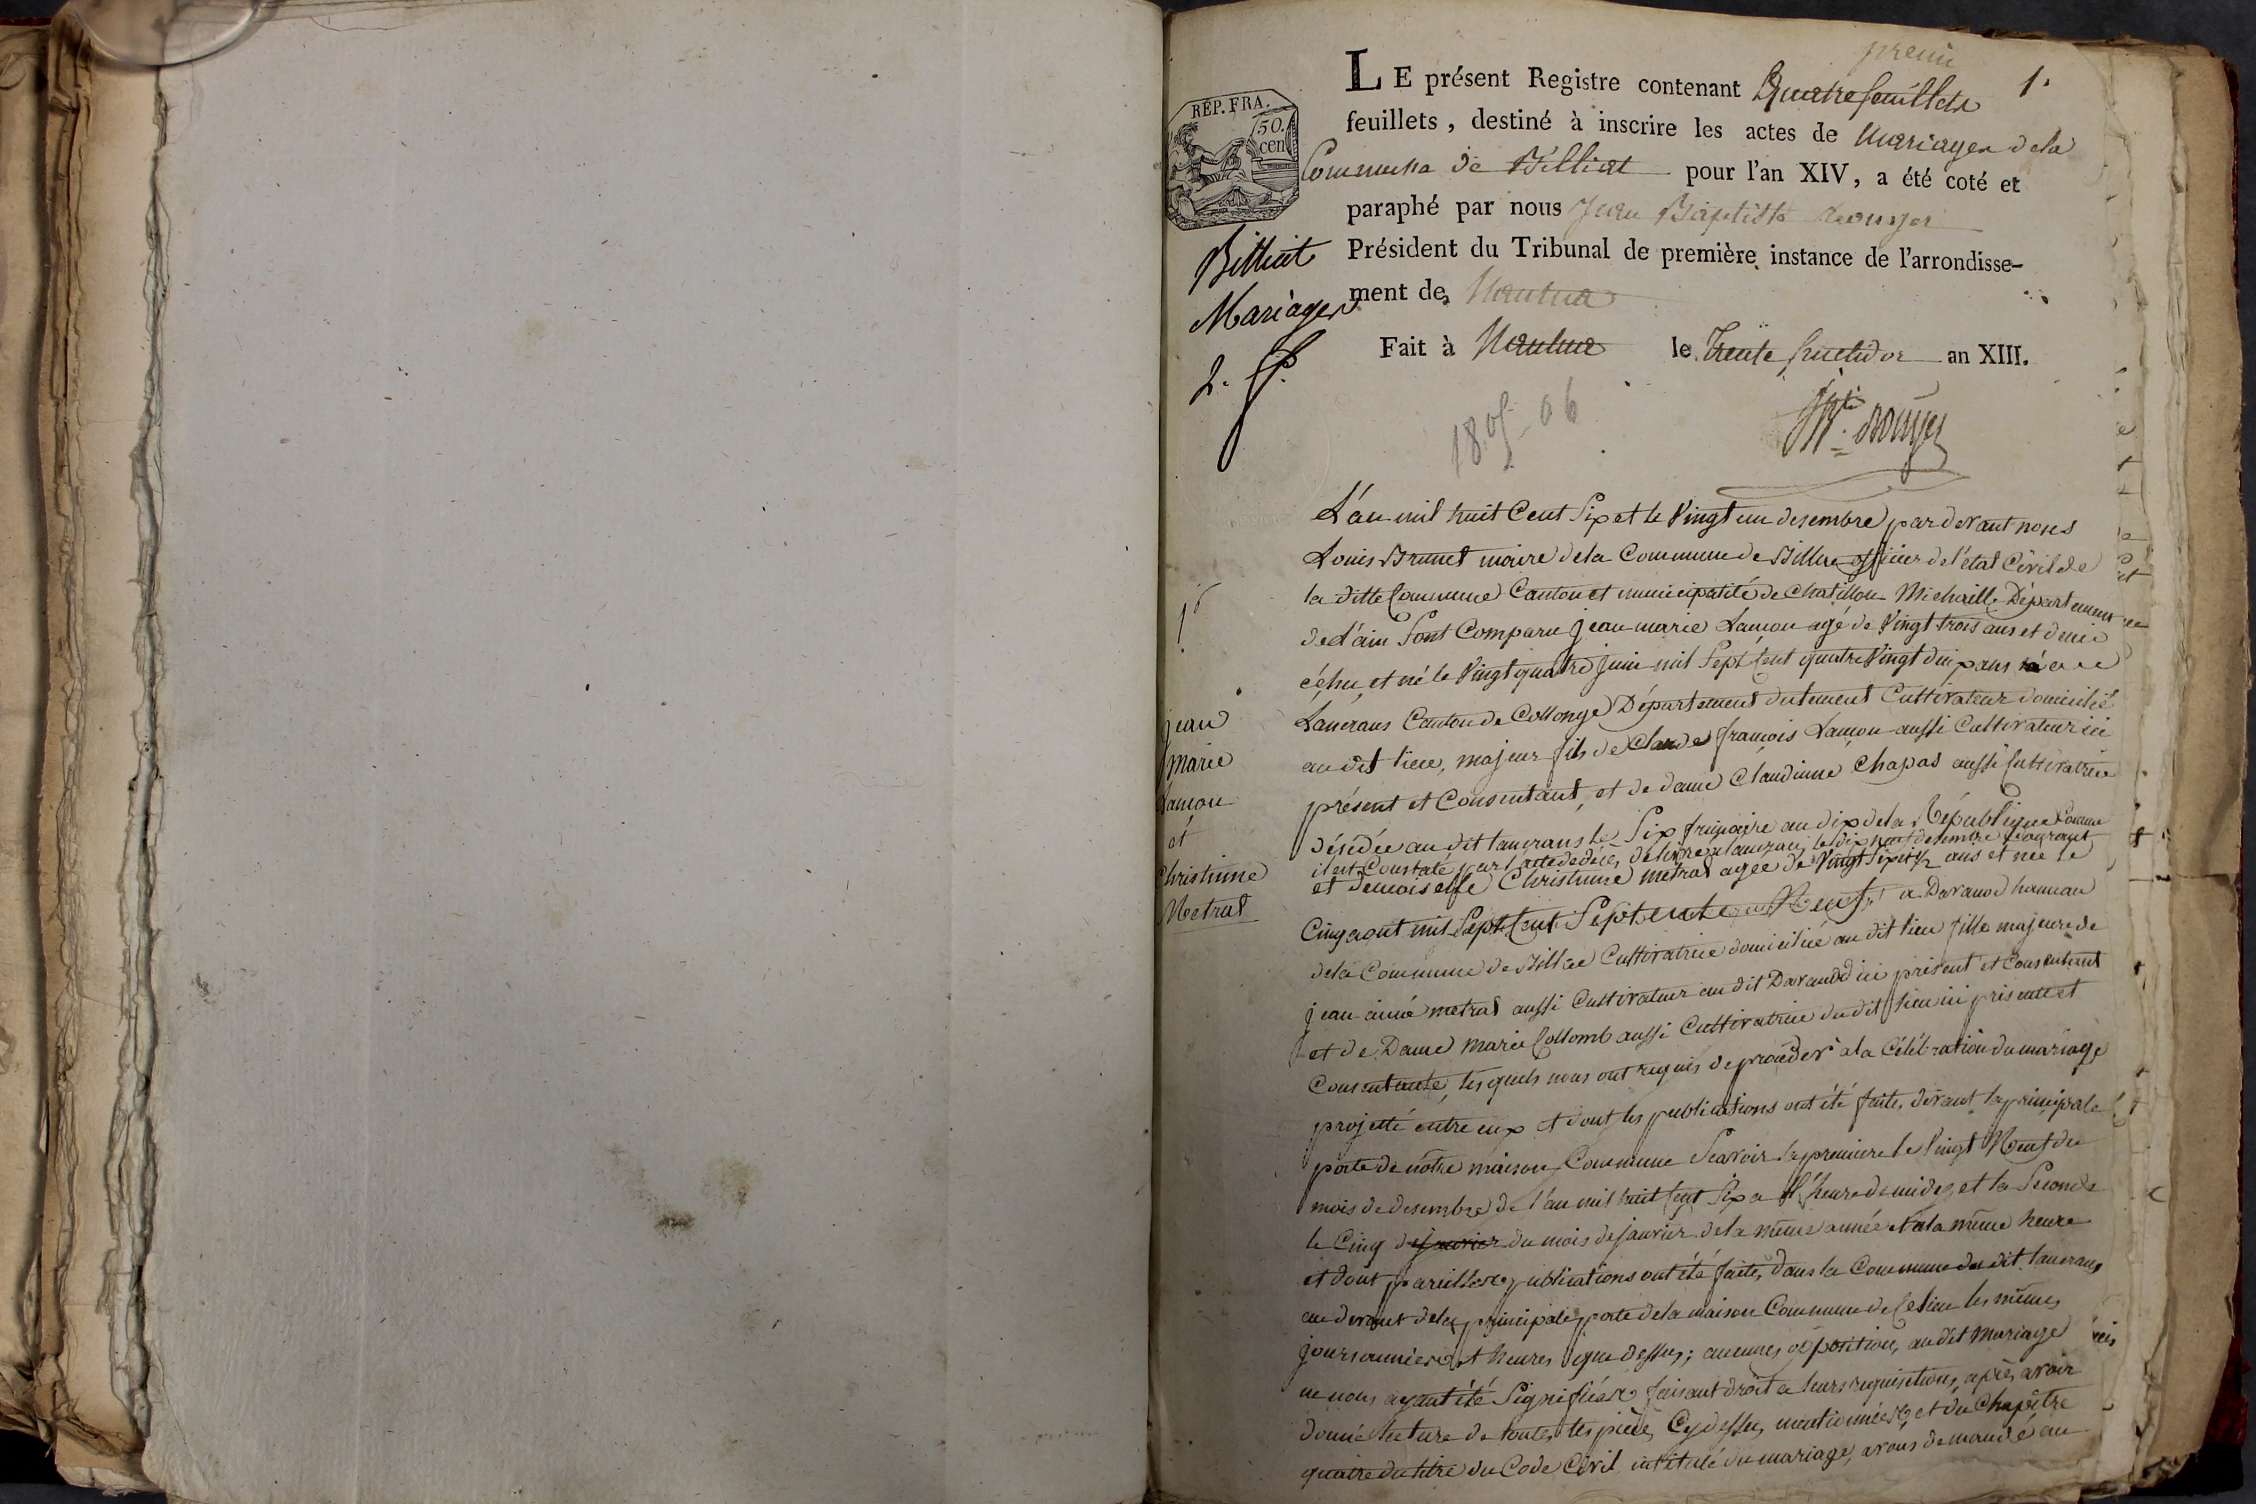 1.
LE présent Registre contenant quatre feuillets
feuillets, destiné à inscrire les actes de Mariages de la
Commune de Billiat pour l'an XIV, a été coté et
paraphé par nous Jean Baptiste Rouyer
Président du Tribunal de première instance de l'arrondisse-
ment de Nantua
Fait à Nantua le trente fructidor an XIII.
RÉP. FRA.
50.
cen
Billiat
Mariages
2.
1805-06
L'an mil huit Cent Six et le Vingt un desembre par devant nous
Louis Brunet maire de la Commune de Billiae officier de l'état Civil de
la ditte Commune Canton et municipalité de Chatillon Michaille Département
de l'ain Sont Comparu jean marie Lançon agé de Vingt trois ans et demie
échu, et né le Vingt quatre juin mil Sept Cent quatre Vingt
Lancrans Canton de Collonge Département du Lement Cultivateur domicilié
au dit lieu, majeur fils de Claude françois Lançon aussi Cultivateur ici
présent et Consentant, et de dame Claudinne Chapas aussi Cultivatrice
désédée au dit lancrans le Six frimaire an dix de la République Comme
il est Constaté par l'acte de décés délivré a lancrans le dix neuf desembre Courant
et demoiselle Christinne metral agée de Vingt Sept ans et née le
Cinq aout mil Sept Cent Septente Neuf a Davanod hameau
de la Commune de Billiae Cultivatrice domiciliée au dit lieu fille majeure de
jean aimé metral aussi Cultivateur au dit Davanod ici présent et Consentent
et de Dame marie Collomb aussi Cultivatrice du dit lieu ici présente et
Consentante, lesquels nous ont requis de procéder a la Célébration du mariage
projetté entre eux et dont les publications ont été faites devant la principale
porte de nôtre maison Commune Scavoir la premiere le Vingt Neuf du
mois de desembre de l'an mil huit Cent Six a l'heure de midy, et la Seconde
le Cinq de janvier du mois de janvier de la même année et a la même heure
et dont pareilles publications ont été faites dans la Commune du dit lancrans
au devant de la principale porte de la maison Commune de Ce lieu les mêmes
jours années et heures que dessus; aucunes opposition, au dit mariage
ne nous ayant été Signifiées faisant droit a leurs réquisitions, après avoir
donné lecture de toutes les pièces Cy dessus mentionnées, et du Chapître
quatre du titre du Code Civil intitulé du mariage, avons demandé au
jean
marie
Lançon
et
Christinne
Metral